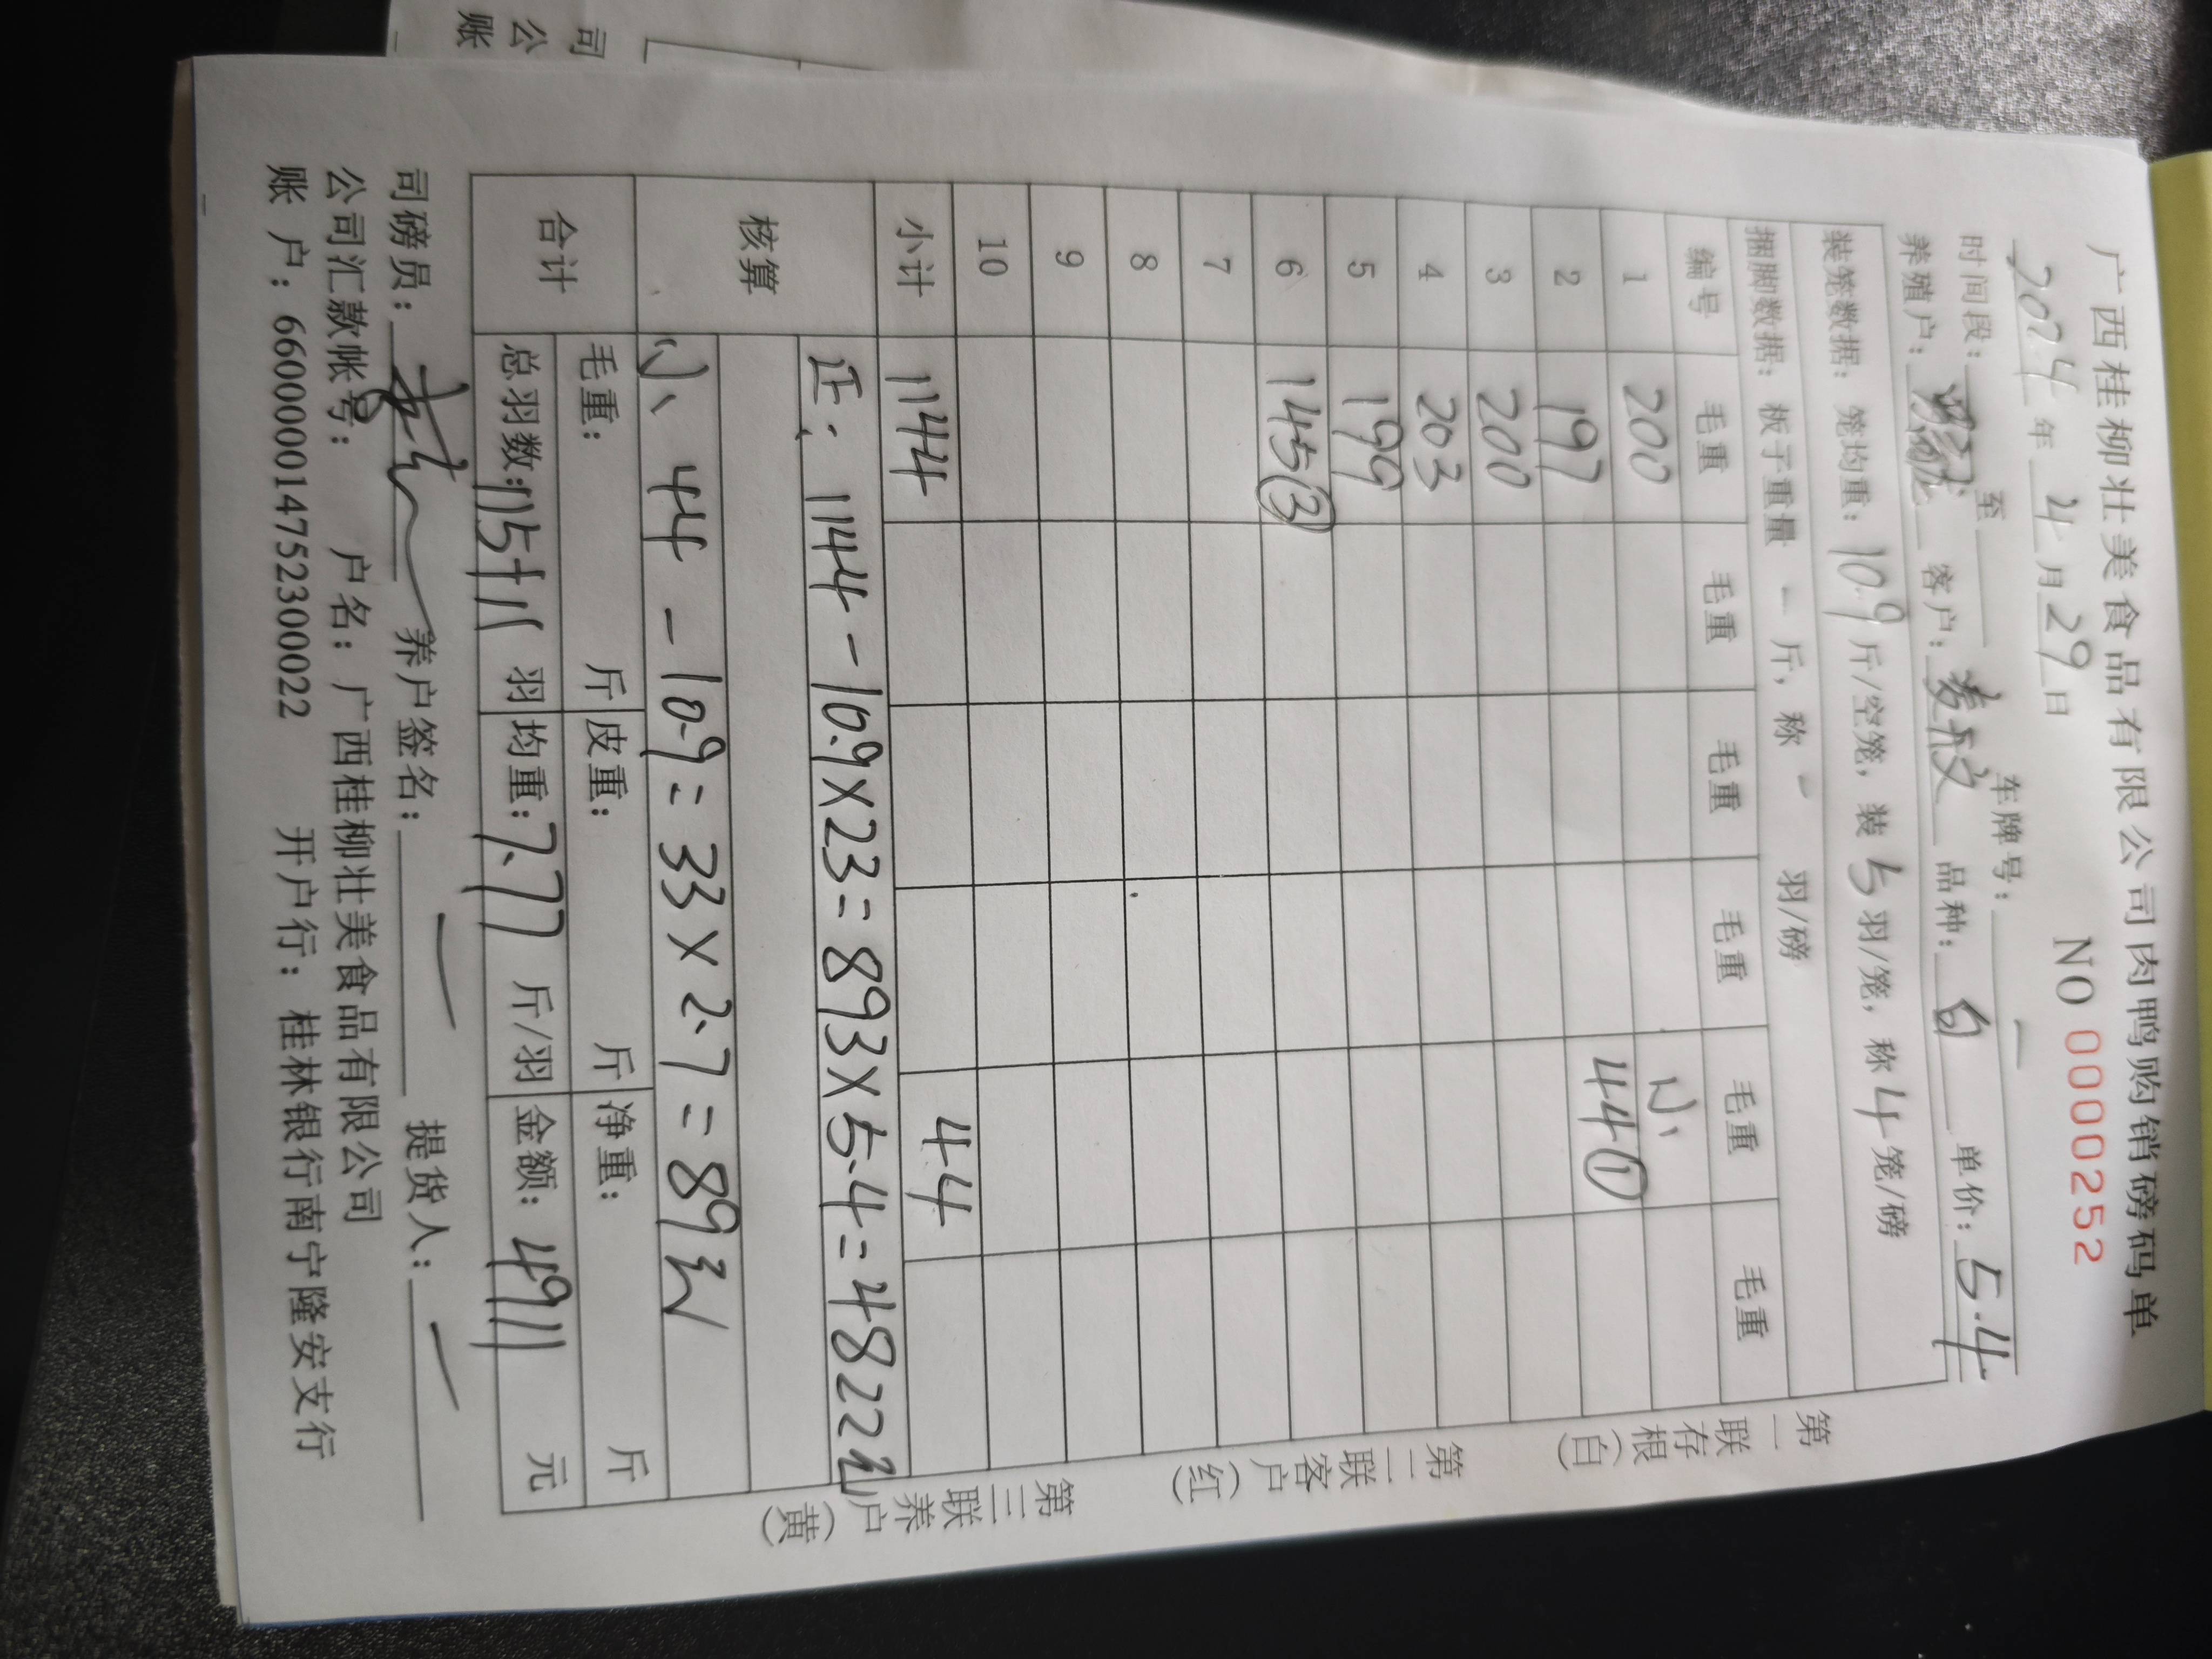 广西桂柳壮美食品有限公司肉鸭购销磅码单
2024年4月29日 NO 0000252
时间段： 至 车牌号：
养殖户： 客户： 品种：白 单价：5.4
装笼数据：笼均重：10.9斤/空笼，装5羽/笼，称4笼/磅
捆脚数据：板子重量 斤，称 羽/磅
编号 毛重 毛重 毛重 毛重 毛重 毛重
1 200 小、
2 197 44①
3 200
4 203
5 199
6 145③
7
8
9
10
小计 1144 44
核算
正：1144-10.9×23=893×5.4=4822元
小、44-10.9=33×2.7=89元
合计
毛重： 斤 皮重： 斤 净重： 斤
总羽数：115+11羽 均重：7.77斤/羽 金额：4911元
司磅员： 养户签名： 提货人：
公司汇款帐号： 户名：广西桂柳壮美食品有限公司
账户：660000014752300022 开户行：桂林银行南宁隆安支行
第一联存根（白）
第二联客户（红）
第三联养户（黄）
司
公
账